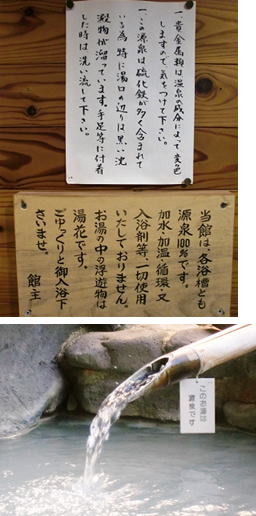 一、貴金属類は温泉の成分によって変色
しますので、気をつけて下さい。
一、この源泉は硫化鉄が多く含まれて
いる為、特に湯口の辺りは黒い沈
澱物が溜っています。手足等に付着
した時は洗い流して下さい。
当館は、各浴槽とも
源泉100%です。
加水・加温・循環・又
入浴剤等、一切使用
いたしておりません。
お湯の中の浮遊物は
湯花です。
ごゆっくりと御入浴下
さいませ。
館主
このお湯は
源泉です